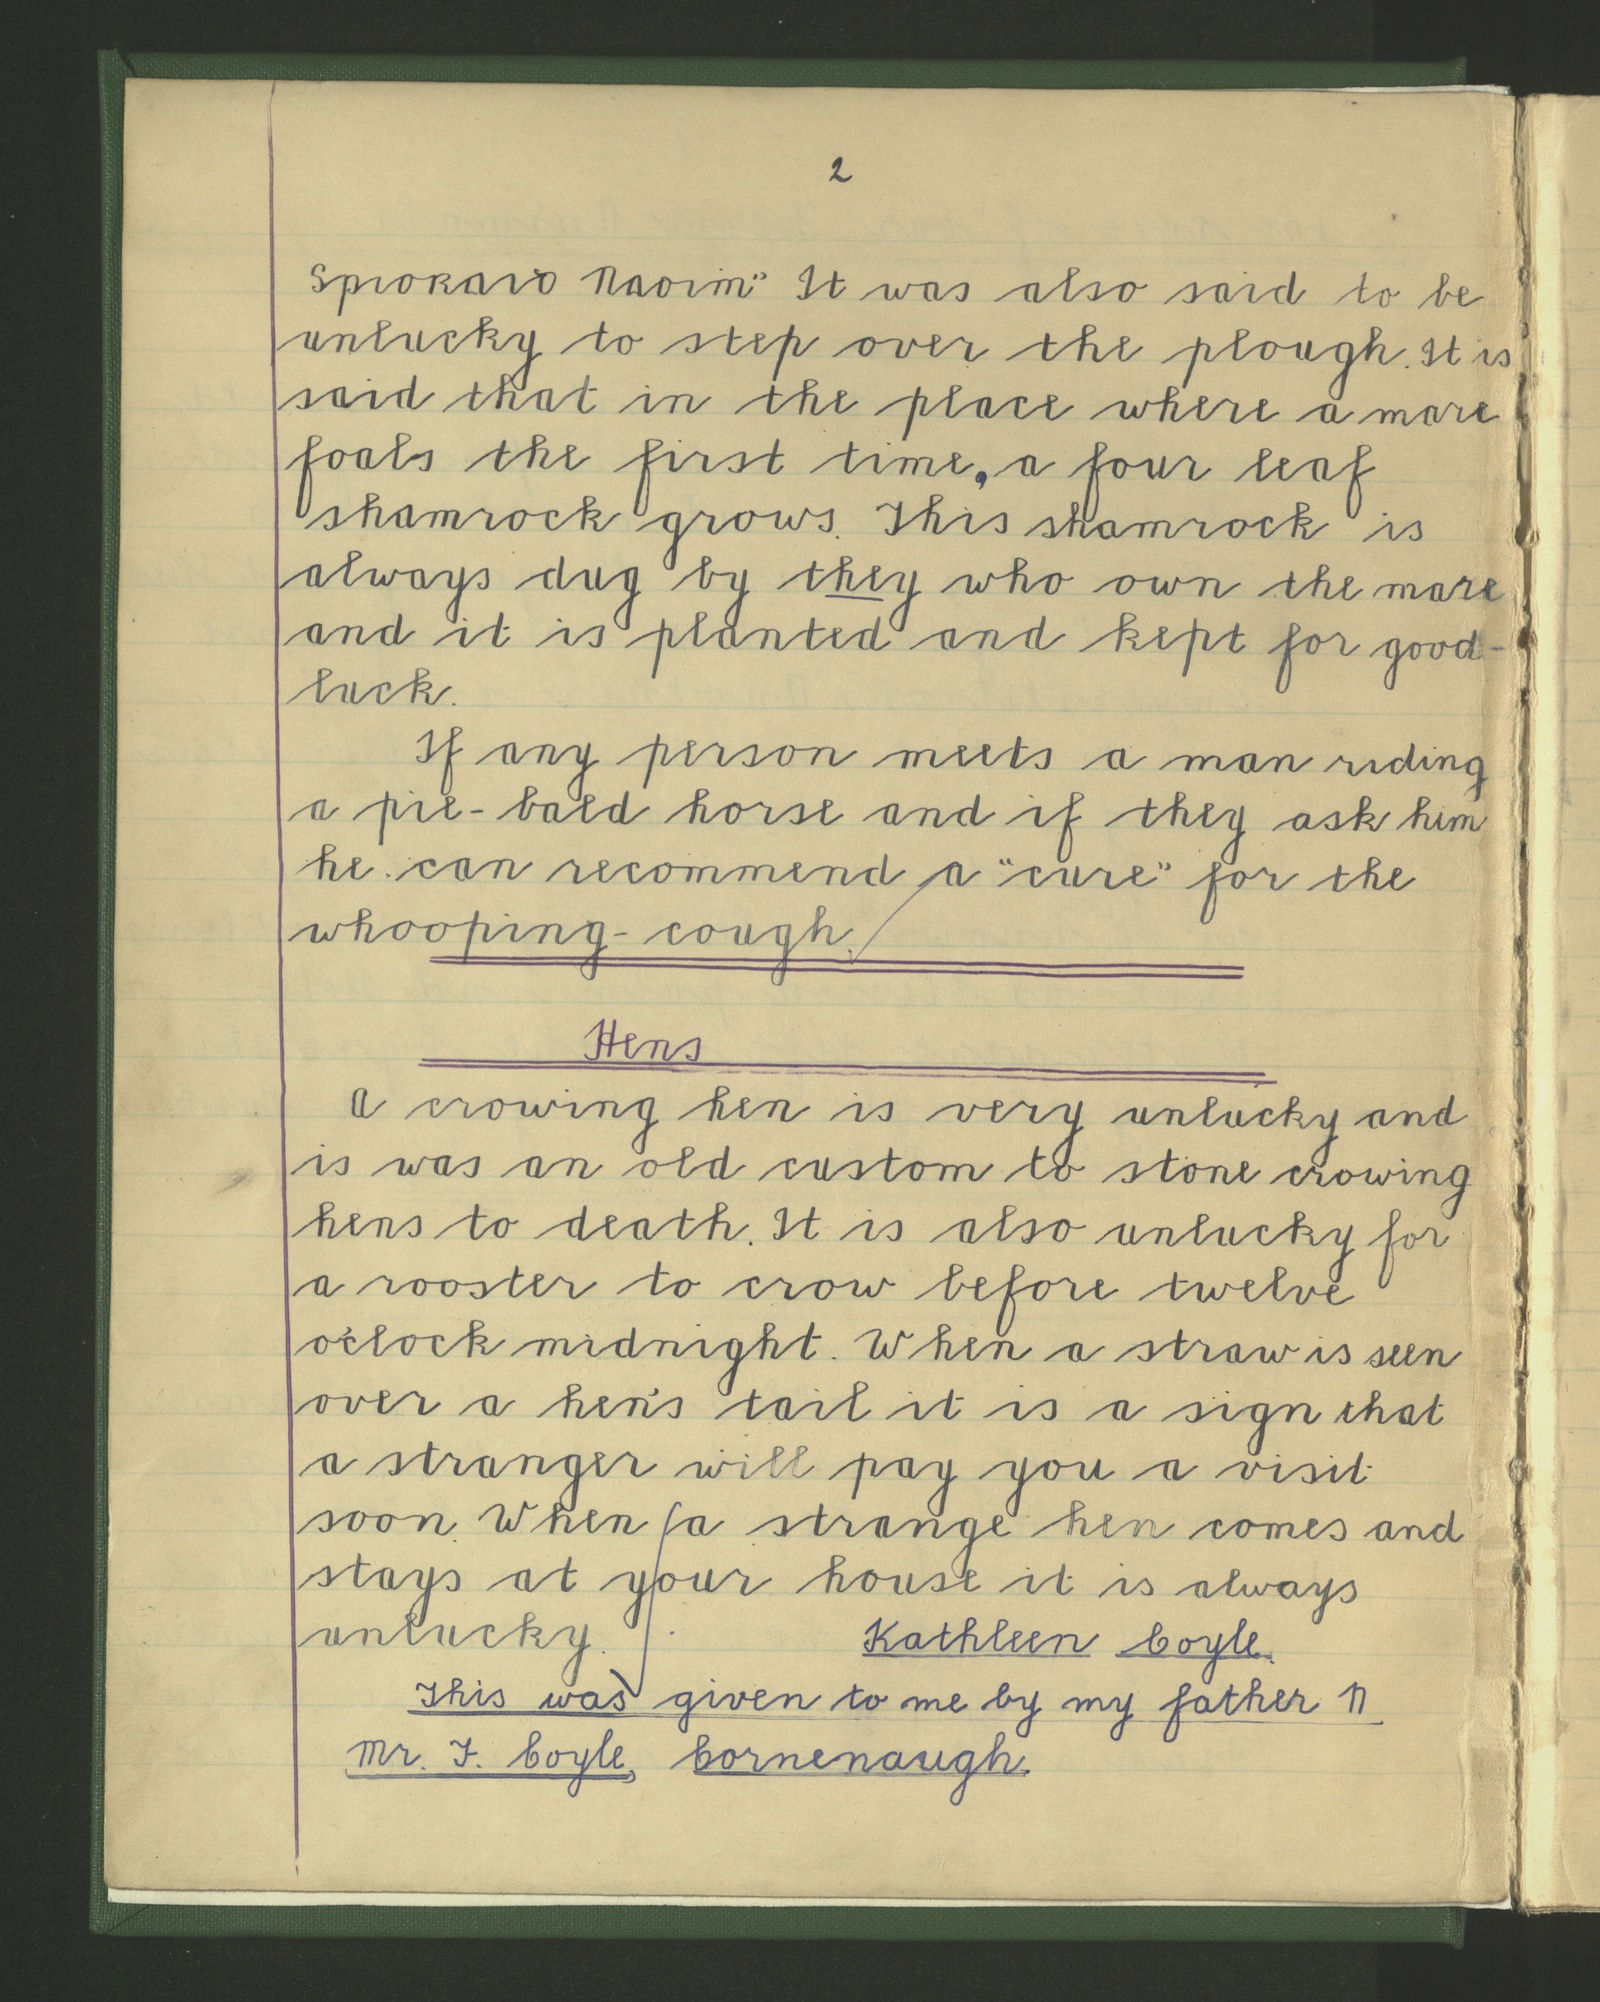 2
Spioraid Naoim" It was also said to be
unlucky to step over the plough. It is
said that in the place where a mare
foals the first time, a four leaf
shamrock grows. This shamrock is
always dug by they who own the mare
and it is planted and kept for good-
luck.
If any person meets a man riding
a pie-bald horse and if they ask him
he can recommend a "cure" for the
whooping-cough.
Hens
A crowing hen is very unlucky and
is was an old custom to stone crowing
hens to death. It is also unlucky for
a rooster to crow before twelve
o'clock midnight. When a straw is seen
over a hen's tail it is a sign that
a stranger will pay you a visit
soon. When a strange hen comes and
stays at your house it is always
unlucky.
Kathleen Coyle.
This was given to me by my father
Mr. F. Coyle, Cornenaugh.